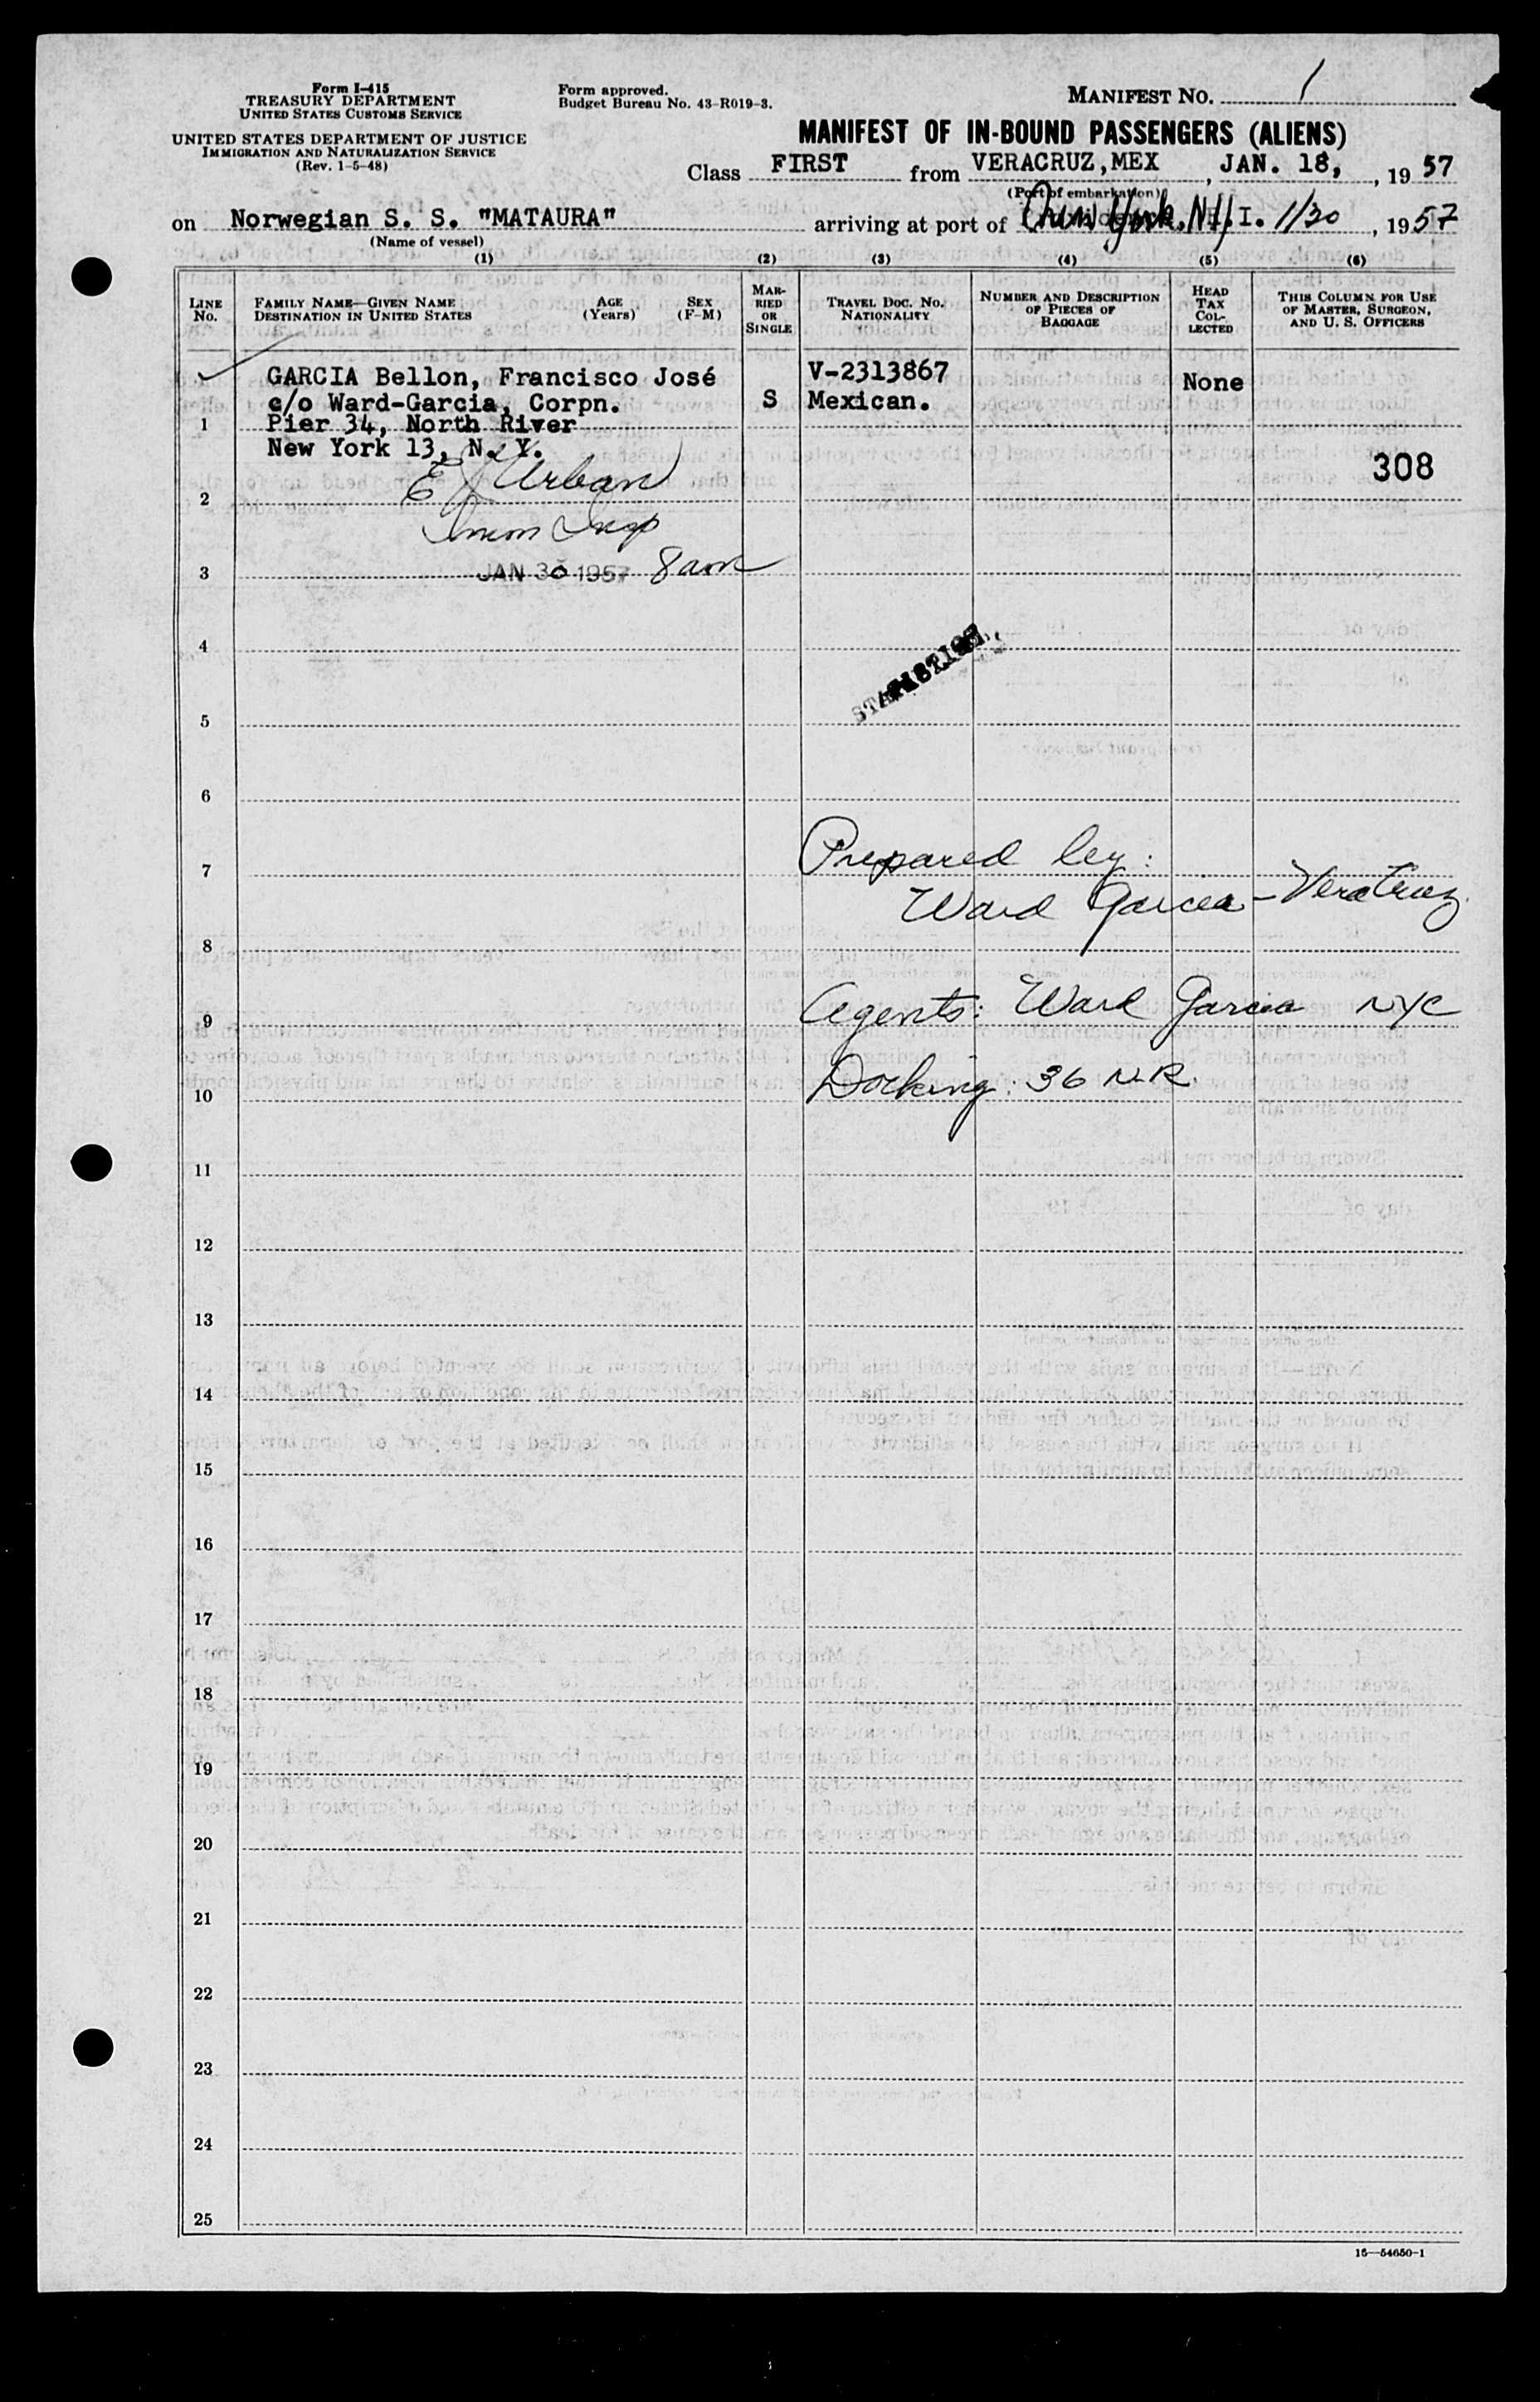 Form I-415
TREASURY DEPARTMENT
UNITED STATES CUSTOMS SERVICE
UNITED STATES DEPARTMENT OF JUSTICE
IMMIGRATION AND NATURALIZATION SERVICE
(Rev. 1-5-48)
Form approved.
Budget Bureau No. 43-R019-3.
MANIFEST NO. 1
MANIFEST OF IN-BOUND PASSENGERS (ALIENS)
Class FIRST from VERACRUZ, MEX, JAN. 18, , 19 57
(Port of embarkation)
on Norwegian S. S. "MATAURA" arriving at port of New York, NY 1/30, 19 57
(Name of vessel)
(1) (2) (3) (4) (5) (6)
LINE No.
FAMILY NAME—GIVEN NAME
DESTINATION IN UNITED STATES
AGE (Years)
SEX (F-M)
MARRIED OR SINGLE
TRAVEL DOC. NO.
NATIONALITY
NUMBER AND DESCRIPTION OF PIECES OF BAGGAGE
HEAD TAX COLLECTED
THIS COLUMN FOR USE OF MASTER, SURGEON, AND U. S. OFFICERS
GARCIA Bellon, Francisco José V-2313867 None
c/o Ward-Garcia, Corpn. S Mexican.
1 Pier 34, North River
New York 13, N. Y.
308
E J Urban
2
Immn Insp
3 JAN 30 1957 8 am
4
5
6
Prepared by:
7
Ward Garcia - Vera Cruz
8
Agents: Ward Garcia NYC
9
Docking: 36 N.R.
10
11
12
13
14
15
16
17
18
19
20
21
22
23
24
25
16—54650-1